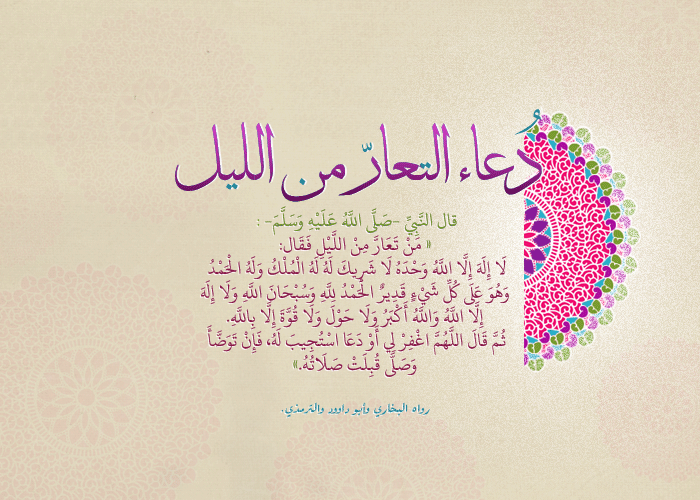 دُعاء التعارّ من الليل
قال النَّبِيِّ -صَلَّى اللَّهُ عَلَيْهِ وَسَلَّمَ- :
« مَنْ تَعَارَّ مِنْ اللَّيْلِ فَقَال:
لَا إِلَهَ إِلَّا اللَّهُ وَحْدَهُ لَا شَرِيكَ لَهُ لَهُ الْمُلْكُ وَلَهُ الْحَمْدُ
وَهُوَ عَلَى كُلِّ شَيْءٍ قَدِيرٌ الْحَمْدُ لِلَّهِ وَسُبْحَانَ اللَّهِ وَلَا إِلَهَ
إِلَّا اللَّهُ وَاللَّهُ أَكْبَرُ وَلَا حَوْلَ وَلَا قُوَّةَ إِلَّا بِاللَّهِ.
ثُمَّ قَالَ اللَّهُمَّ اغْفِرْ لِي أَوْ دَعَا اسْتُجِيبَ لَهُ، فَإِنْ تَوَضَّأَ
وَصَلَّى قُبِلَتْ صَلَاتُهُ.»
رواه البخاري وأبو داوود والترمذي.